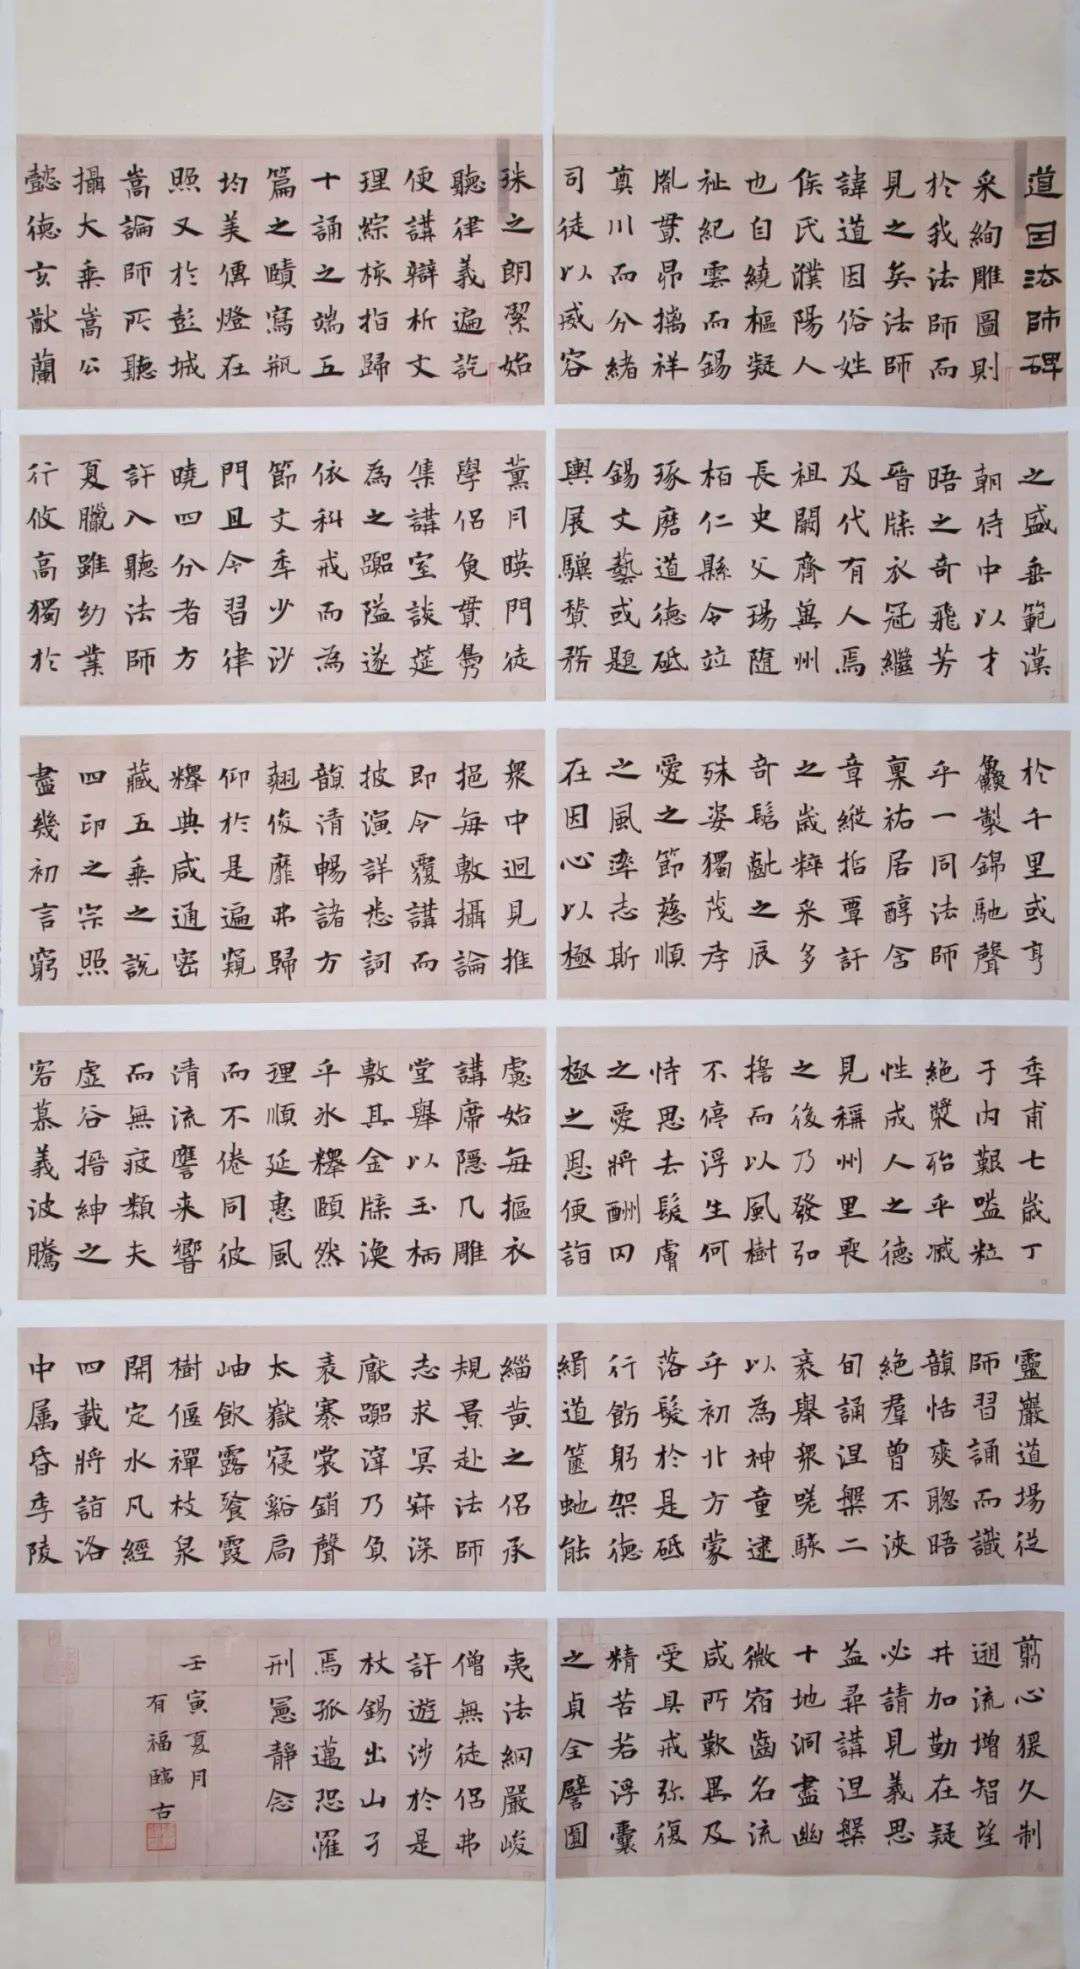 道因法師碑
采絢雕圖則
於我法師而
見之矣法師
諱道因俗姓
侯氏濮陽人
也自繞樞凝
祉紀雲而錫
胤貫昴摛祥
奠川而分緒
司徒以威容
之盛垂範漢
朝侍中以才
晤之奇飛芳
晉牒衣冠繼
及代有人焉
祖闕齊冀州
長史父瑒隨
柏仁縣令竝
琢磨道德砥
錫文藝或題
輿展驥贊務
於千里或亨
鱻製錦馳聲
乎一同法師
稟祐居醇含
章縱哲覃訏
之歲粹采多
奇髫齔之辰
殊姿獨茂孝
愛之節慈順
之風率志斯
在因心以極
年甫七歲丁
于內艱嗌粒
絕漿殆乎滅
性成人之德
見稱州里喪
之後乃發弘
捨而以風樹
不停浮生何
恃思去髮膚
之愛將酬罔
極之恩便詣
靈巖道場從
師習誦而識
韻恬爽聰晤
絕羣曾不浹
旬誦涅槃二
袠舉眾嗟駭
以為神童逮
乎初丱方蒙
落髮於是砥
行飭躬架德
緝道篋虵能
翦心猨久制
遡流增智望
井加勤在疑
必請見義思
益尋講涅槃
十地洞盡幽
微宿齒名流
咸所歎異及
受具戒彌復
精苦若浮囊
之貞全譬圓
珠之朗潔始
聽律義遍訖
便講辯析文
理綜核指歸
十誦之端五
篇之賾寫瓶
均美傳燈在
照又於彭城
嵩論師所聽
攝大乘嵩公
懿德玄猷蘭
薰月暎門徒
學侶魚貫鳧
集講室談筵
為之囂隘遂
依科戒而為
節文年少沙
門且令習律
曉四分者方
許入聽法師
夏臘雖幼業
行攸高獨於
眾中迥見推
挹每敷攝論
即令覆講而
披演詳悉詞
韻清暢諸方
翹俊靡弗歸
仰於是遍窺
釋典咸通密
藏五乘之說
四印之宗照
盡幾初言窮
慮始每摳衣
講席隱几雕
堂舉以玉柄
敷其金牒渙
乎冰釋頤然
理順延惠風
而不倦同彼
清流譍来響
而無疲類夫
虛谷搢紳之
客慕義波騰
緇黃之侶承
規景赴法師
志求冥寂深
厭囂滓乃負
袠褰裳銷聲
太嶽寢谿扃
岫飲露餐霞
樹偃禪枝泉
開定水凡經
四載將詣洛
中属昏季陵
夷法網嚴峻
僧無徒侶弗
許遊涉於是
杖錫出山孑
焉孤邁恐罹
刑憲靜念
壬寅夏月
有福臨古